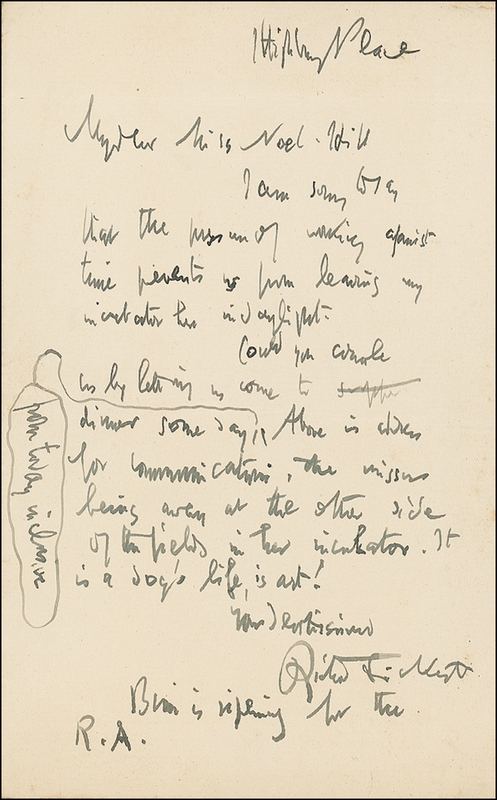 Highbury Place
My dear Miss Noel-Hill
I am sorry to say
that the pressure of working against
time prevents us from leaving my
incubator her in daylight.
Could you console
us by letting us come to supper
dinner some day, Above is address
for communications, the missus
being away at the other side
of the fields in her incubator. It
is a dog's life, is art!
from today inclusive
Your
Richard Sickert
is for the
R.A.